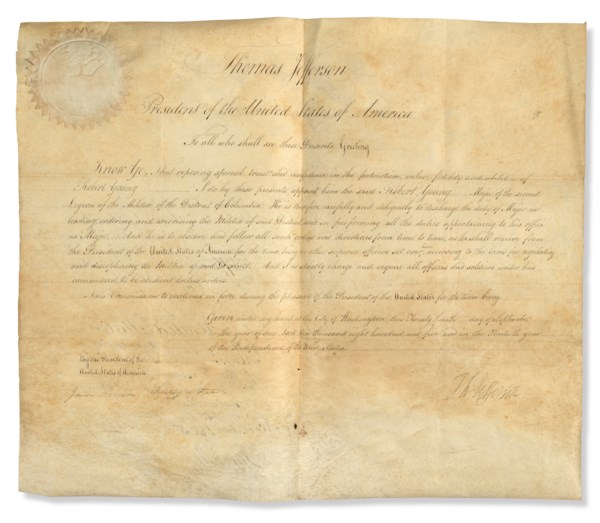 Thomas Jefferson
President of the United States of America
To all who shall see these Presents, Greeting
Know Ye, That reposing special trust and confidence in the patriotism, valor, fidelity and abilities of
Robert Young I do by these presents appoint him the said Robert Young Major of the second
Legion of the Militia of the District of Columbia: He is therefore carefully and diligently to discharge the duty of Major in
leading, ordering and exercising the Militia of said District and in performing all the duties appertaining to his office
as Major. And he is to observe and follow all such orders and directions from time to time, as he shall receive from
the President of the United States of America for the time being or other superior officer set over according to the law for regulating
and disciplining the Militia of said District. And I do strictly charge and require all officers and soldiers under his
command, to be obedient to his orders.
This Commission to continue in force during the pleasure of the President of the United States for the time being.
Given under my hand at the City of Washington, this day of September
the year of our Lord One thousand eight hundred and five and in the Thirtieth year
of the Independence of the United States.
By the President of the
United States of America
James Madison Secretary of State
Th: Jefferson